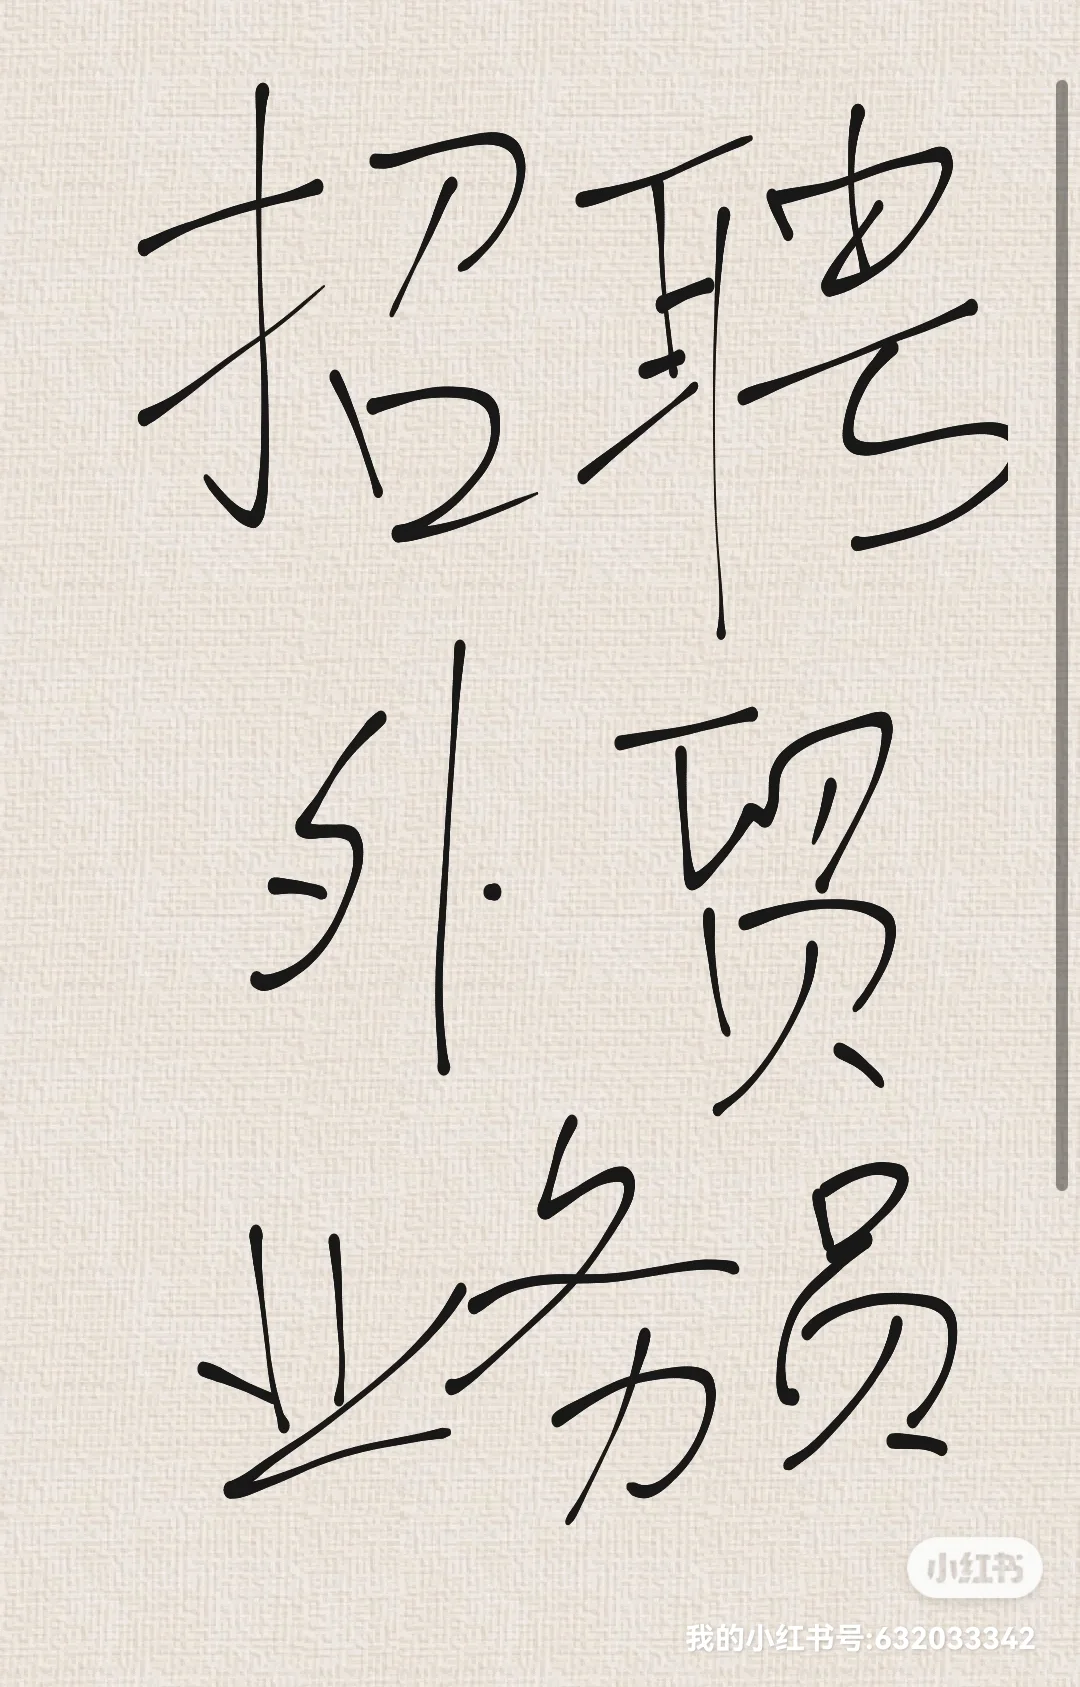 招聘
外贸
业务员
小红书
我的小红书号:632033342